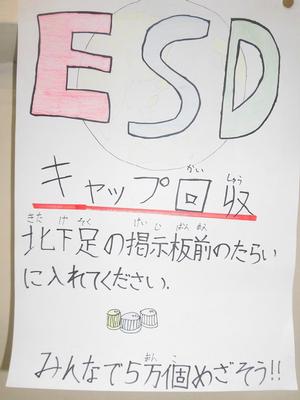 ESD
キャップ回収
かい しゅう
北下足の掲示板前のたらい
きた げ そく けい じ ばん まえ
に入れてください.
みんなで5万個めざそう!!
まん こ